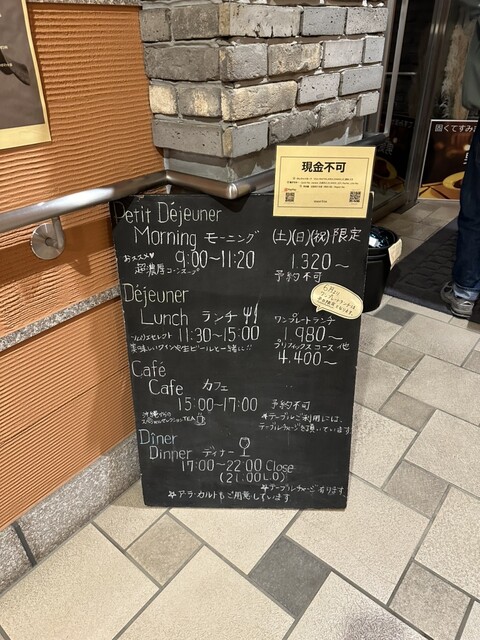 現金不可
Petit Déjeuner
Morning モーニング (土)(日)(祝)限定
おススメ♥ 9:00~11:20 1,320~
超濃厚コーンスープ 予約不可
Déjeuner
Lunch ランチ ワンプレートランチ
11:30~15:00 1,980~
美味しいワインや生ビールと一緒に!! プリフィックスコース 他
4,400~
Café
Cafe カフェ
15:00~17:00 予約不可
TEA ★テーブルご利用には、
テーブルチャージを頂いています
Dîner
Dinner ディナー
17:00~22:00 Close
(21:00 L.O)
★テーブルチャージ有ります。
★ア・ラ・カルトもご用意しています
固くてすみ